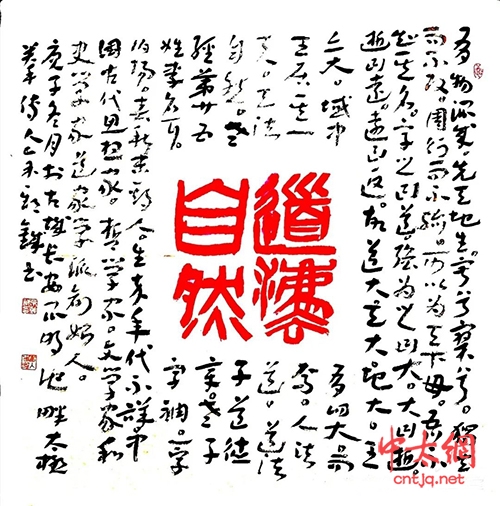 有物混成先天地生。兮寞兮。独立
而不改。周行而不殆。可以为天下母。吾不
知其名。字之曰道。强为之曰大。大曰逝。
逝曰远。远曰返。故道大天大地大。王
亦大。域中有四大。而
王居其一焉。人法
天法道。道法
自然。老子道德
经第廿五章。老子
姓李名耳。字聃。字
伯阳。春秋末期人。生卒年代不详。中
国古代思想家。哲学家。文学家和
史学家道家学派创始人。
庚子冬月书古城长安明池畔太极
传人
道法
自然
中太網
cntjq.net